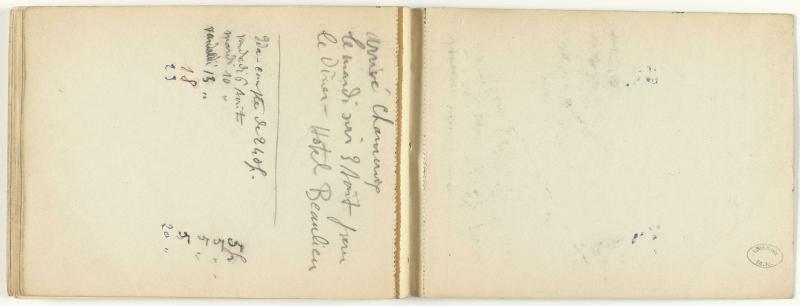 arrivé Chamonix
le mardi soir 3 Août pour
le Dîner - Hotel Beaulieu
Ida - compte de 240f.
vendredi 6 Août 5f
mardi 10 " 5 "
vendredi 13 " 5 "
18 5
23 20 "